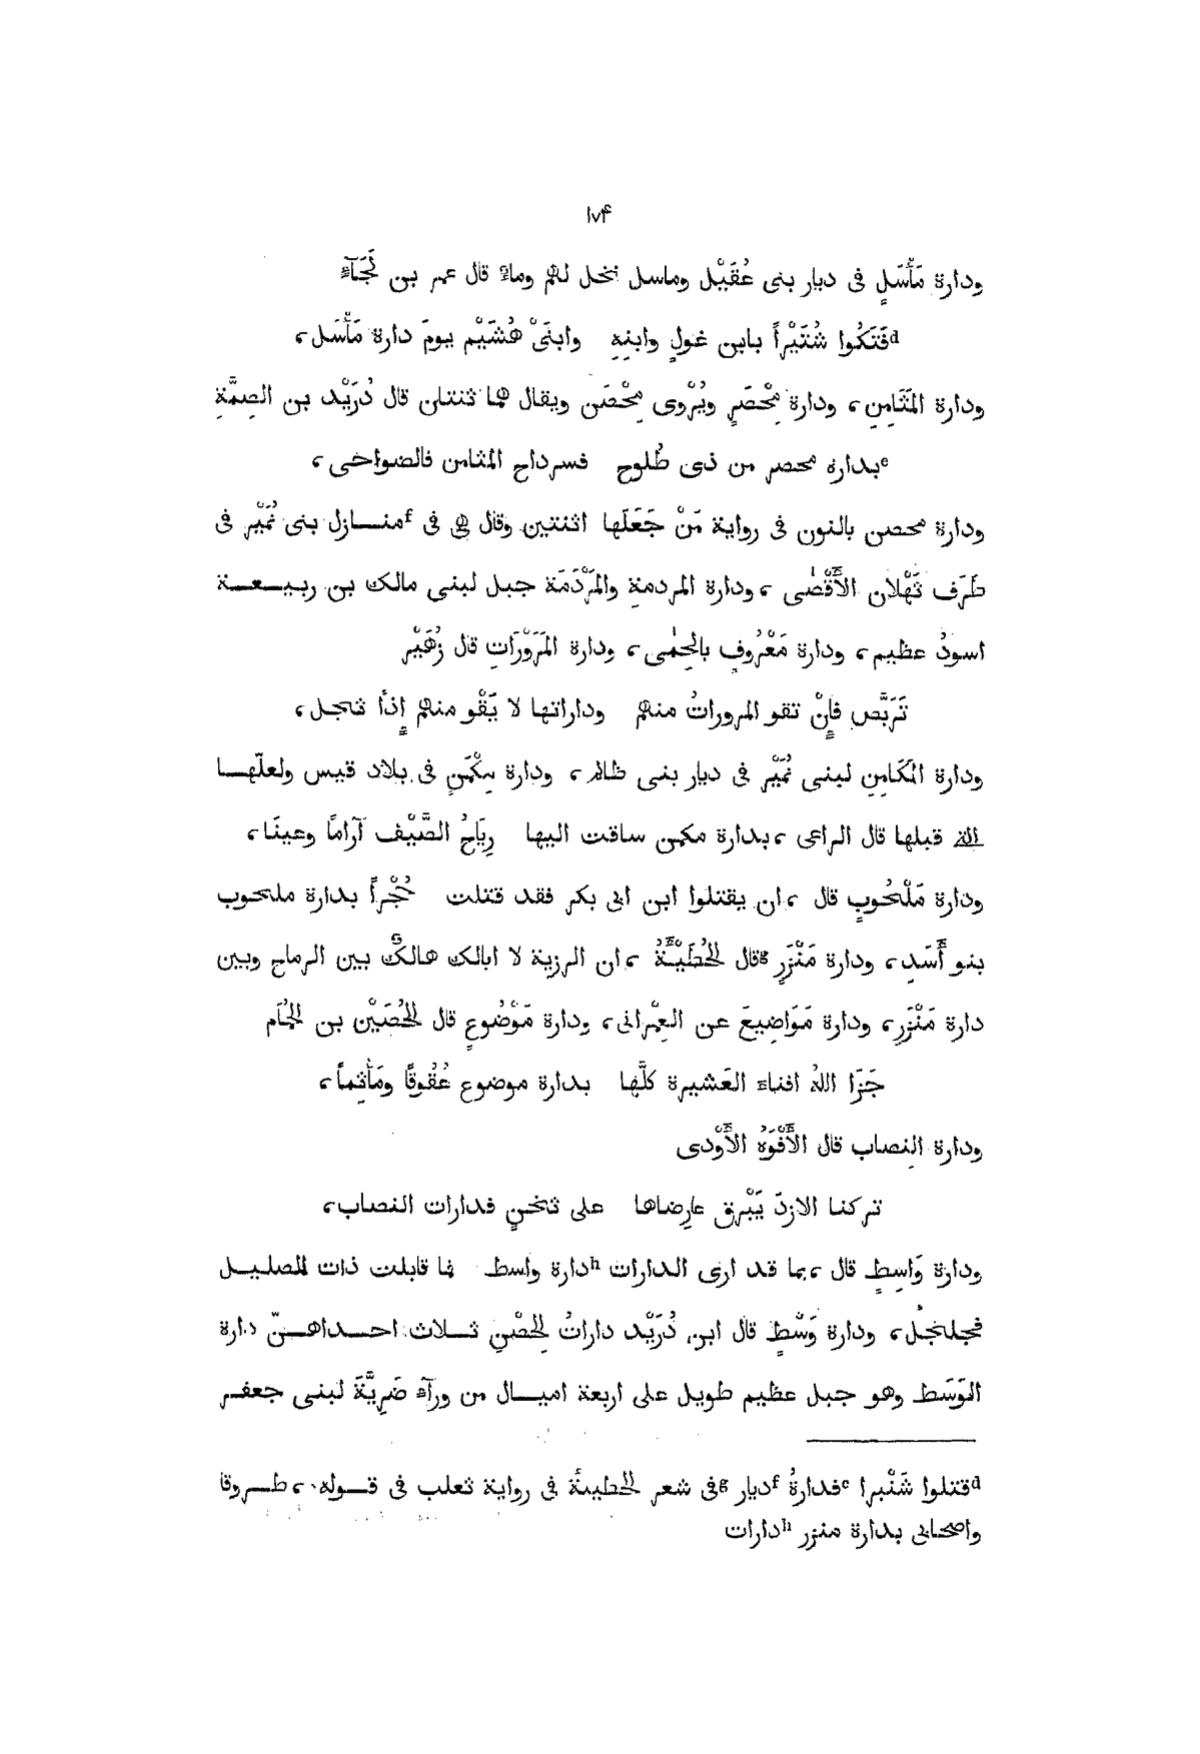 ١٧۴
ودارة مَأْسَلٍ فى ديار بنى عُقَيْل وماسل نخل لهم وماء قال عمر بن لَجَآءٍ
dفَتَكُوا شُتَيْراً بابن غولٍ وابنِهِ وابنَىْ هُشَيْم يومَ دارة مَأْسَل،
ودارة المَثَامِنِ، ودارة مِحْصَرٍ ويُرْوى مِحْصَن ويقال هما ثنتان قال دُرَيْد بن الصِمَّةِ
eبدارة محصر من ذى طُلوح فسرداح المثامن فالضواحى،
ودارة محصن بالنون فى رواية مَنْ جَعَلَها اثنتين وقال هى فى fمنازل بنى نُمَيْر فى
طَرَف ثَهْلان الأَقْصٰى، ودارة المردمة والمَرْدَمَة جبل لبنى مالك بن ربيعة
اسودُ عظيم، ودارة مَعْرُوفٍ بالحِمٰى، ودارة المَرَوْرَاتِ قال زُهَيْر
تَرَبَّص فإِنْ تقو المروراتُ منهم وداراتها لا يَقْو منهم إِذًا نجل،
ودارة المَكَامِنِ لبنى نُمَيْر فى ديار بنى ظالم، ودارة مِكْمَنٍ فى بلاد قيس ولعلّها
الله قبلها قال الراعى، بدارة مكمن ساقت اليها رِيَاحُ الصَّيْف آرامًا وعينَا،
ودارة مَلْحُوبٍ قال، ان يقتلوا ابن ابى بكر فقد قتلت حُجْراً بدارة ملحوب
بنو أَسَدٍ، ودارة مَنْزَرٍ gقال الحُطَيْئَةُ، ان الرزية لا ابالك هالكٌ بين الرماح وبين
دارة مَنْزَرِ، ودارة مَوَاضِيعَ عن العِمْرانى، ودارة مَوْضُوعٍ قال الحُصَيْن بن الحُمَام
جَزَا اللهُ افناءَ العَشيرة كلَّها بدارة موضوع عُقُوقًا ومَأْثَماً،
ودارة النِصاب قال الأَفْوَهُ الأَوْدى
تركنا الازدَ يَبْرق عارِضاها على ثَجْنٍ فدارات النصاب،
ودارة وَاسِطٍ قال، بما قد ارى الدارات hدارة واسط فما قابلت ذات الصليل
فجلجلُ، ودارة وَسْطٍ قال ابن دُرَيْد داراتُ الحِصْنِ ثلاث احداهنّ دارة
الوَسَط وهو جبل عظيم طويل على اربعة اميال من ورآء ضَرِيَّةَ لبنى جعفر
dقتلوا شَنْبرا eفدارةُ fديار gفى شعر الحطيئة فى رواية ثعلب فى قوله، طروقا
واصحابى بدارة منزر hدارات